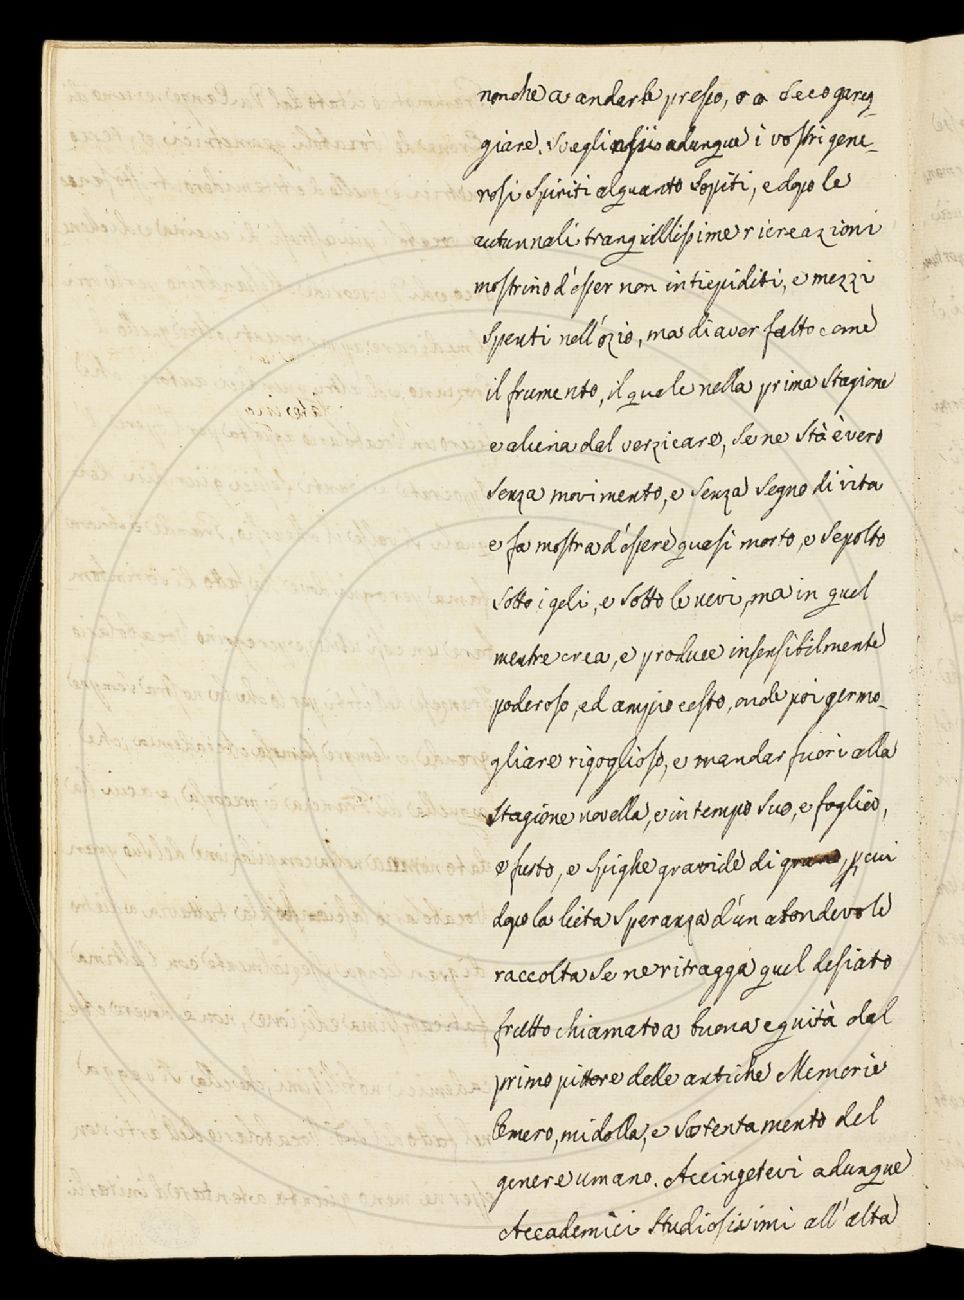 nonche a andarle presso, o a seco gareg-
giare. Sveglinsi adunque i vostri gene-
rosi spiriti alquanto sopiti, e dopo le
autunnali tranquillissime ricreazioni
mostrino d'esser non intiepiditi, e mezzi
spenti nell'ozio, ma di aver fatto come
il frumento, il quale nella prima stagione
e alieno dal verzicare, se ne stà è vero
senza movimento, e senza segno di vita
e fa mostra d'essere quasi morto, e sepolto
sotto i geli, e sotto le nevi, ma in quel
mentre crea, e produce insensibilmente
poderoso, ed ampio cesto, onde poi germo-
gliare rigoglioso, e mandar fuori alla
stagione novella, e in tempo suo, e foglie,
e fusto, e spighe gravide di grano, p cui
dopo la lieta speranza d'un abondevole
raccolta se ne ritragga quel desiato
frutto chiamato a buona equità dal
primo pittore delle antiche Memorie
Omero, midolla, e sostentamento del
genere umano. Accingetevi adunque
Accademici studiosissimi all'alta